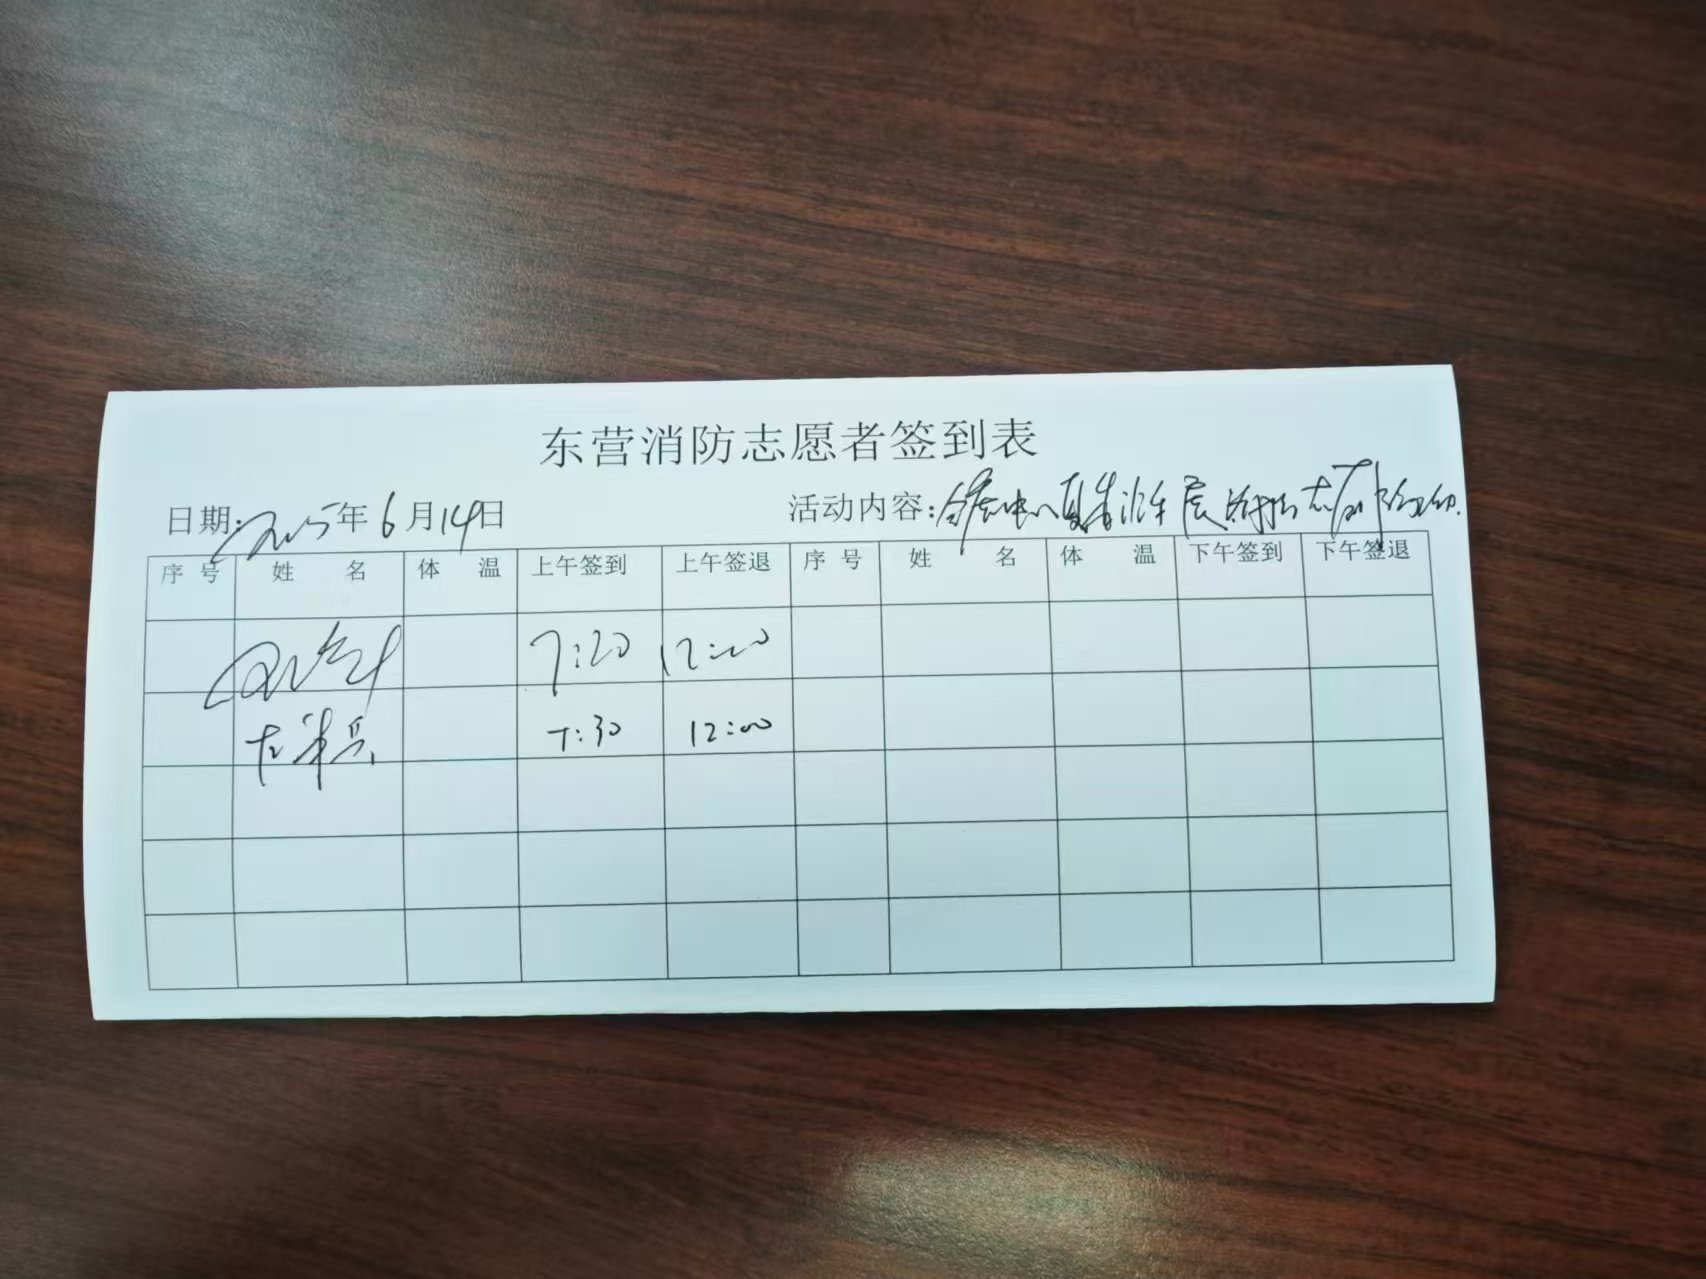 东营消防志愿者签到表
日期:2025年6月14日 活动内容:会展中心夏季汽车展消防志愿
序号 姓 名 体 温 上午签到 上午签退 序号 姓 名 体 温 下午签到 下午签退
7:20 12:00
7:30 12:00